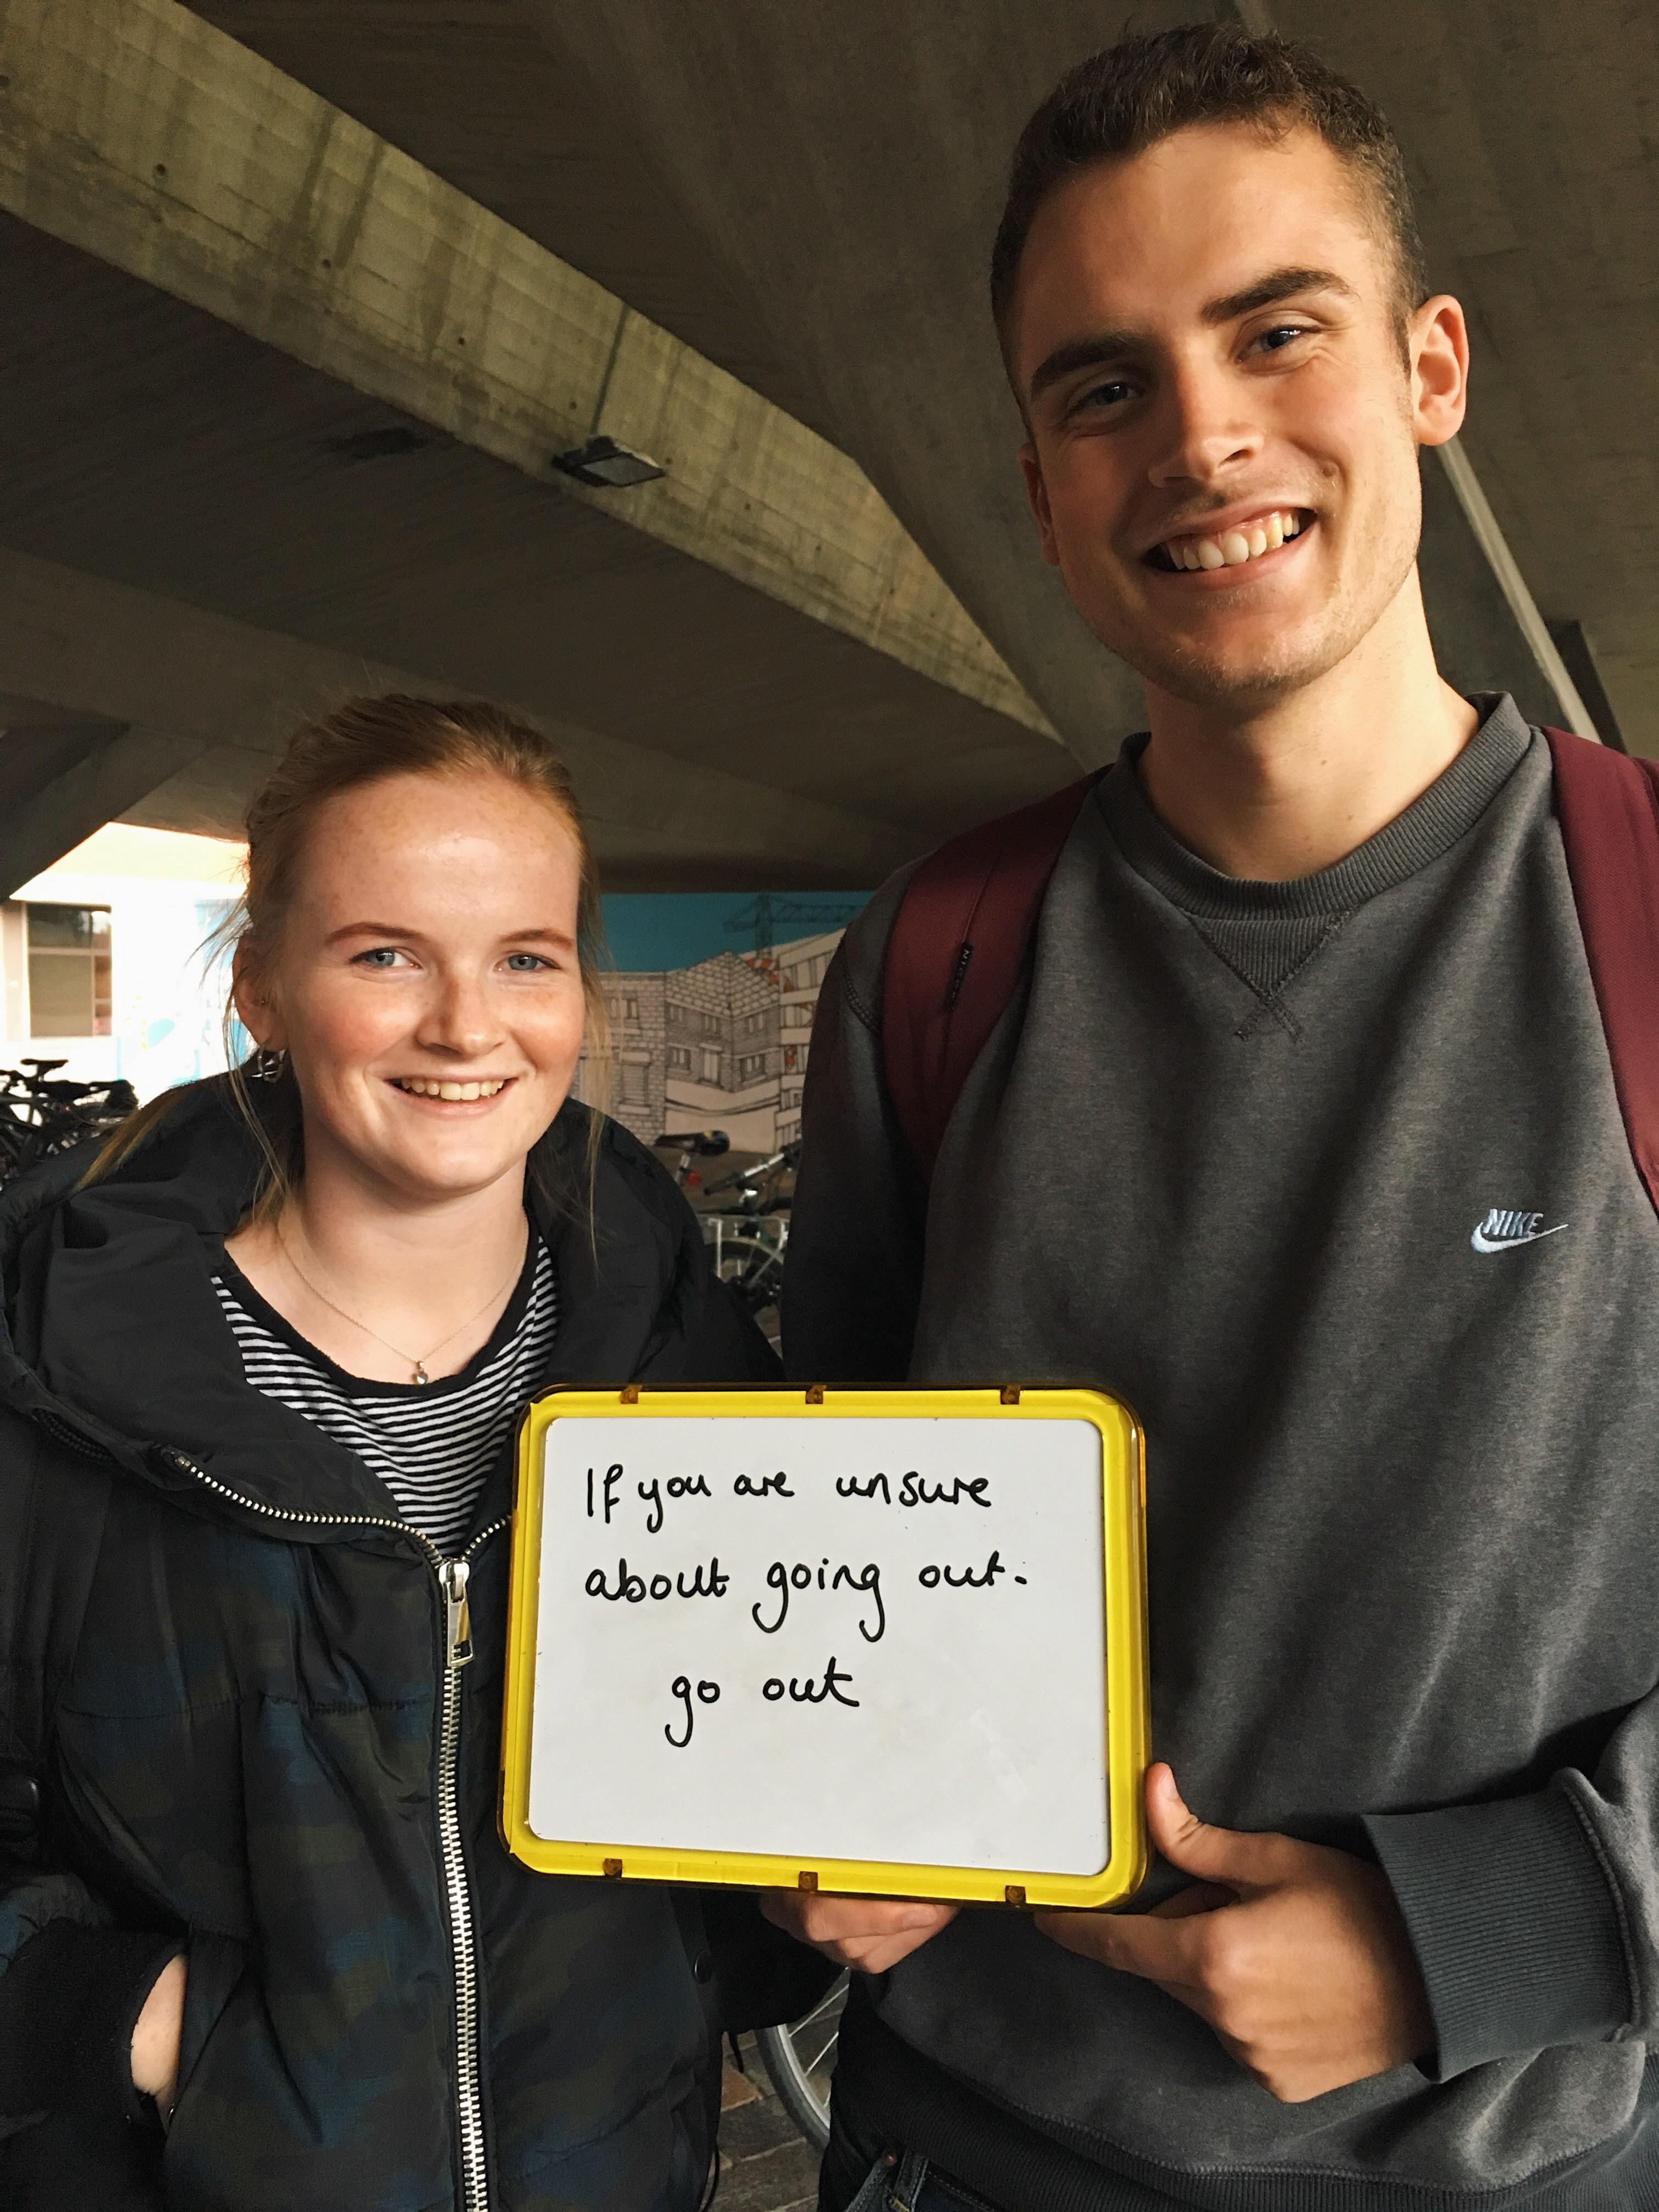 NIKE
If you are unsure
about going out.
go out